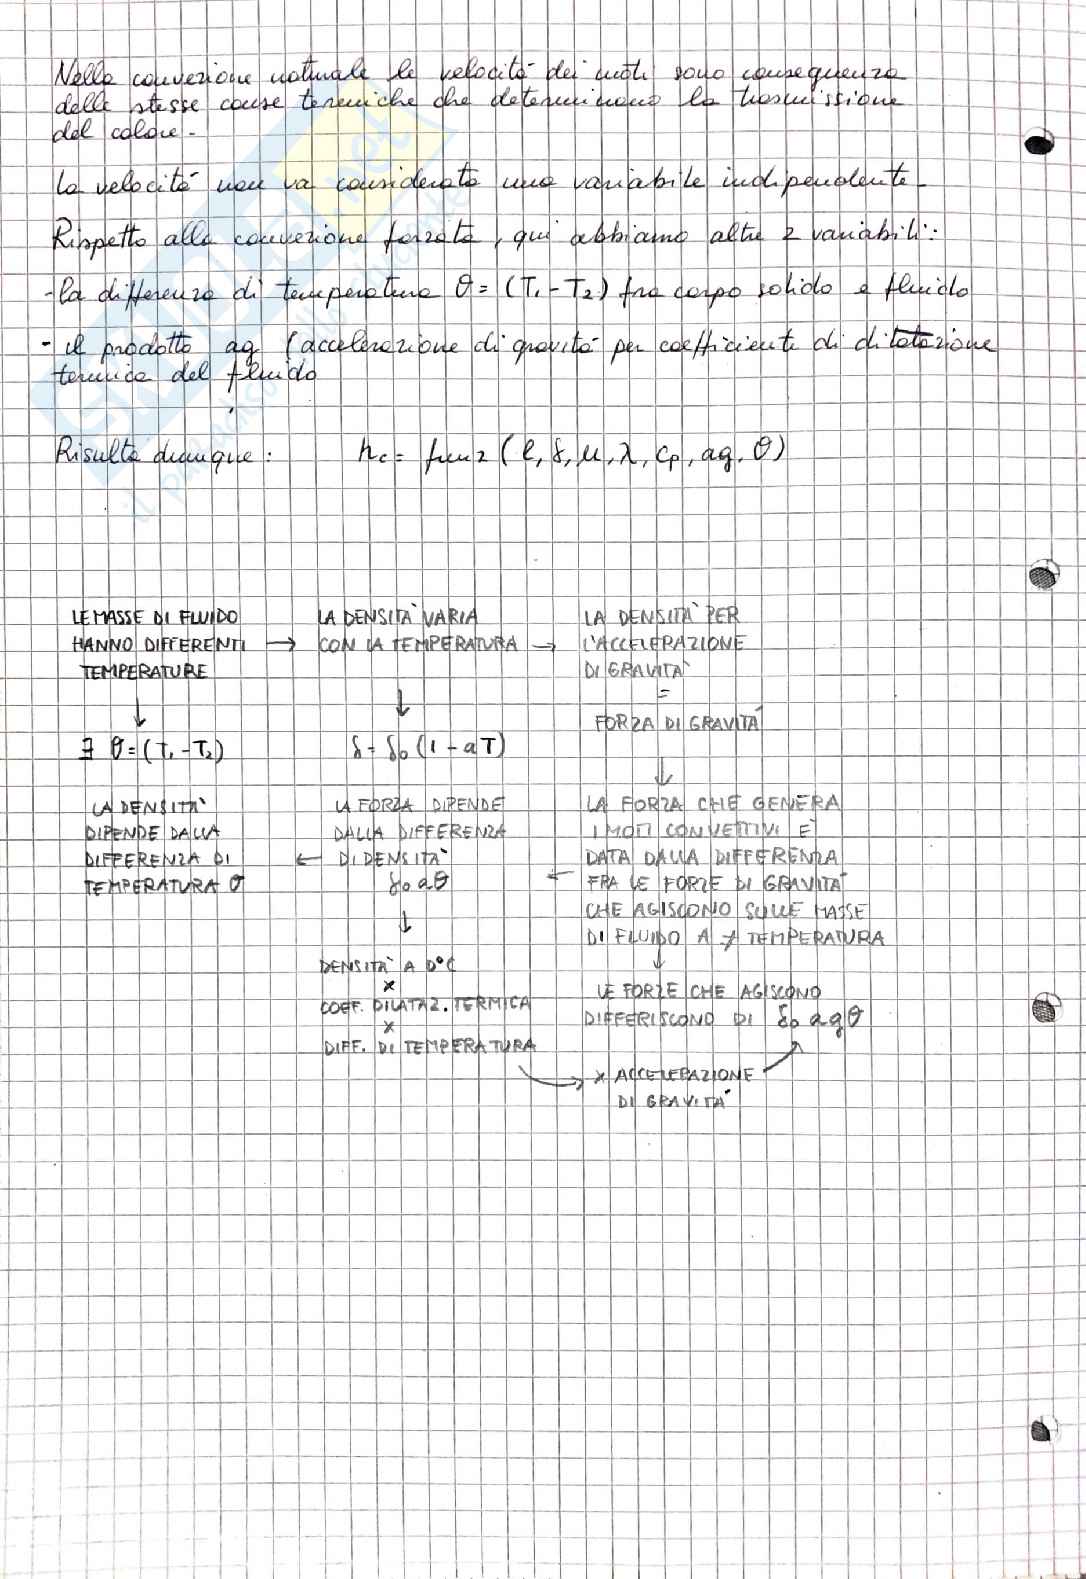 Nella convezione naturale le velocità dei moti sono conseguenza
delle stesse cause termiche che determinano la trasmissione
del calore.
La velocità non va considerata una variabile indipendente.
Rispetto alla convezione forzata, qui abbiamo altre 2 variabili:
- la differenza di temperatura θ = (T₁ - T₂) fra corpo solido e fluido
- il prodotto ag (accelerazione di gravità per coefficiente di dilatazione
termica del fluido
Risulta dunque: hc = funz (l, δ, μ, λ, cp, ag, θ)
LE MASSE DI FLUIDO
HANNO DIFFERENTI →
TEMPERATURE
↓
∃ θ = (T₁ - T₂)
LA DENSITÀ VARIA
CON LA TEMPERATURA →
↓
δ = δ₀ (1 - aT)
LA DENSITÀ PER
L'ACCELERAZIONE
DI GRAVITÀ
=
FORZA DI GRAVITÀ
↓
LA FORZA CHE GENERA
I MOTI CONVETTIVI È
DATA DALLA DIFFERENZA
← FRA LE FORZE DI GRAVITÀ
CHE AGISCONO SULLE MASSE
DI FLUIDO A ≠ TEMPERATURA
↓
LE FORZE CHE AGISCONO
DIFFERISCONO DI δ₀ agθ
LA FORZA DIPENDE
DALLA DIFFERENZA
← DI DENSITÀ
δ₀ aθ
↓
DENSITÀ A 0°C
×
COEFF. DILATAZ. TERMICA
×
DIFF. DI TEMPERATURA
× ACCELERAZIONE
DI GRAVITÀ
LA DENSITÀ
DIPENDE DALLA
DIFFERENZA DI
TEMPERATURA θ
SKUOLA.net
il paradiso dello studente